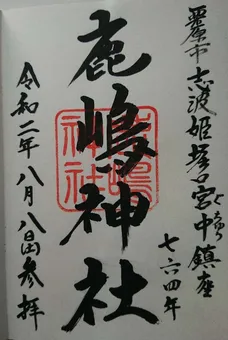 栗原市志波姫堀口宮中鎮座
七六四年
鹿嶋神社
鹿嶋神社
令和二年八月八日参拝